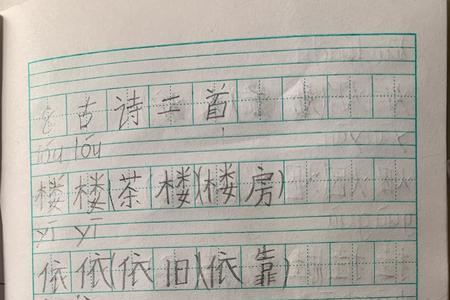 8 古诗二首
lóu lóu
楼 楼(茶 楼)(楼 房)
yī yī
依 依(依 旧)(依 靠)